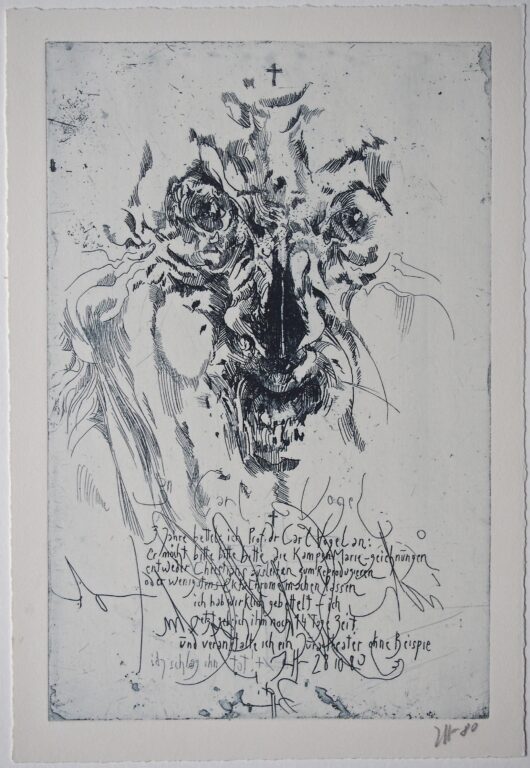 Carl Vogel
3 Jahre bettele ich Prof. dr Carl Vogel an:
er möcht bitte bitte bitte die Kampen Marie-zeichnungen
entweder Christians ausleihen zum Reproduzieren
oder wenigstens Ektachrom machen lassen
ich hab wirklich gebettelt – ich
jetzt geb ich ihm noch 14 Tage Zeit
und veranstalte ich ein theater ohne Beispie
ich schlag ihn tot! 28 10 80
80